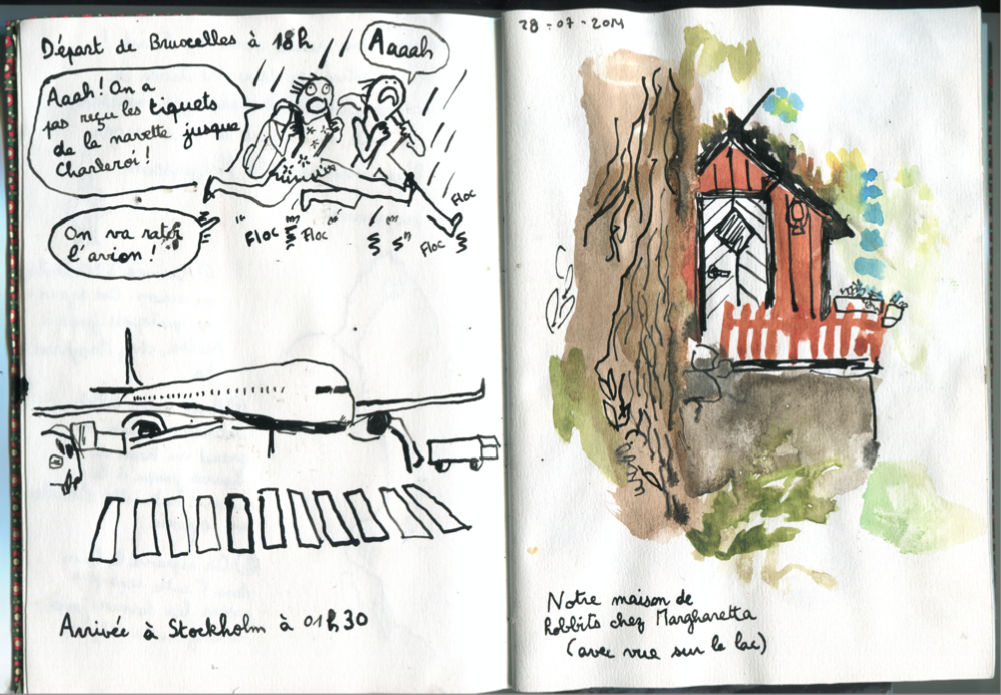 Départ de Bruxelles à 18h
Aaaah
Aaah! On a
pas reçu les tiquets
de la navette jusque
Charleroi!
On va rater
l'avion!
Floc
Floc
Floc
Floc
Arrivée à Stockholm à 01h30
28-07-2011
Notre maison de
hobbits chez Margharetta
(avec vue sur le lac)